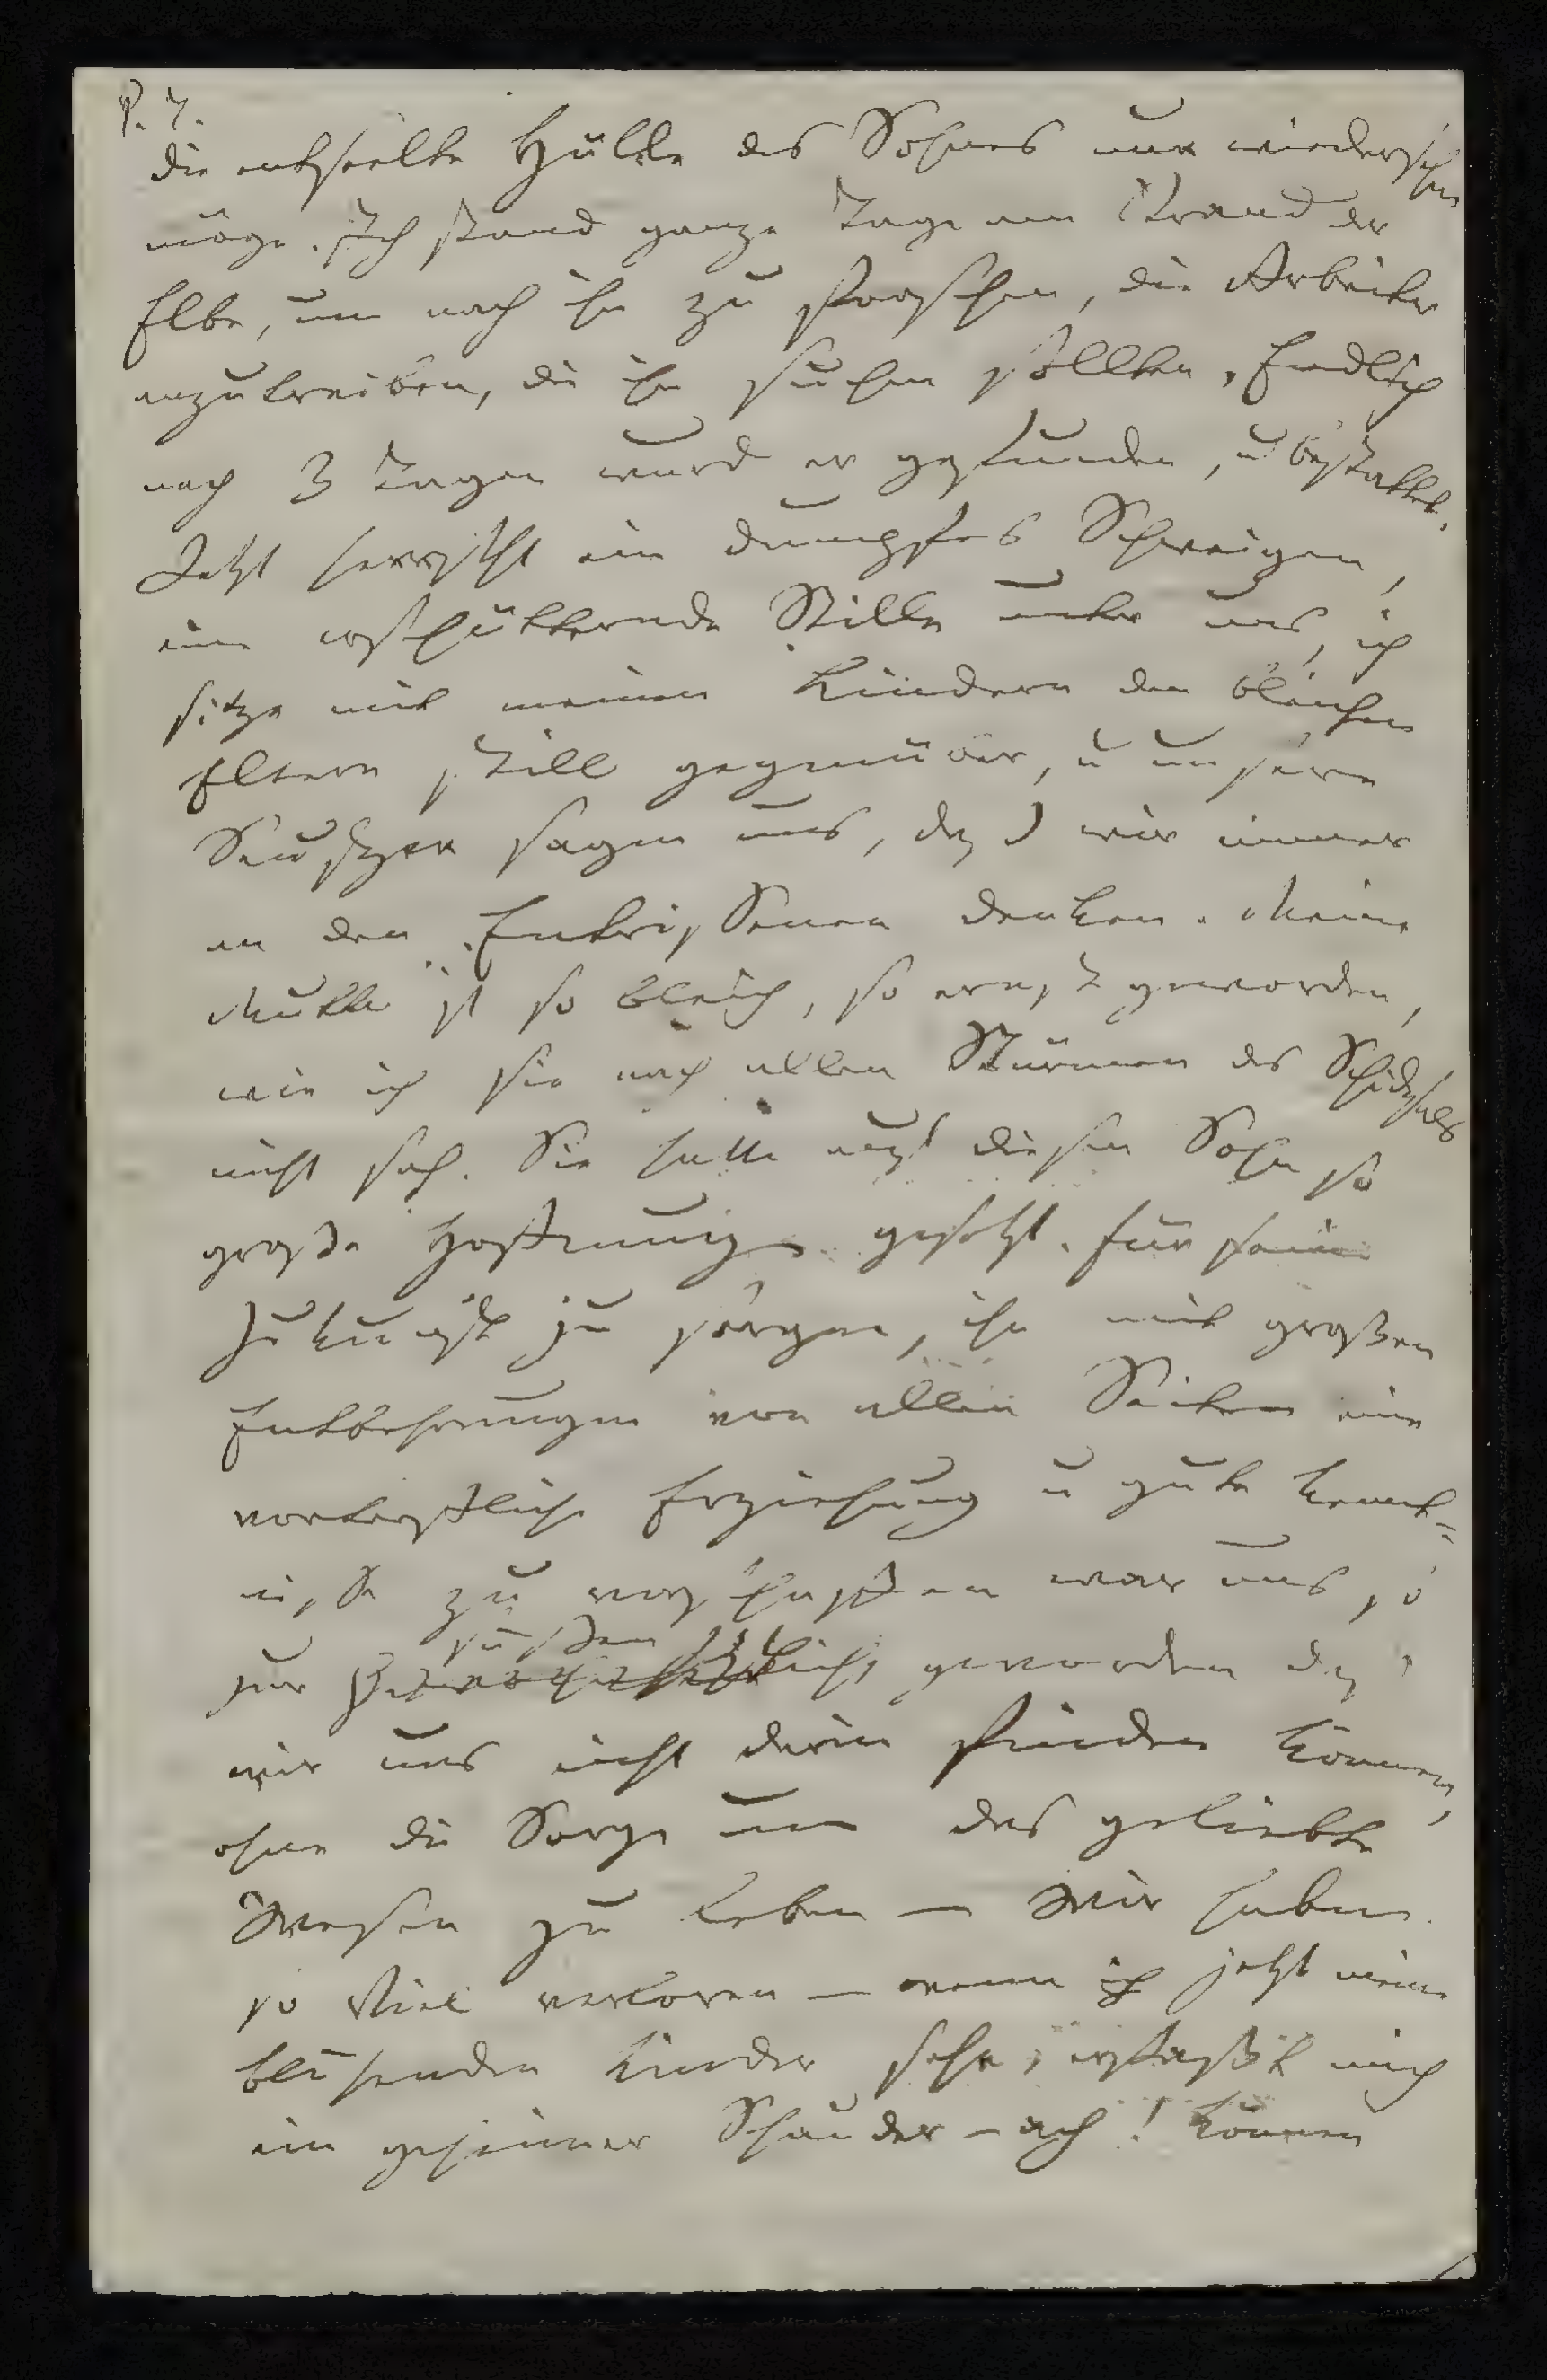 P. 7.
die entseelte Hülle des Sohnes nur wiedersehen
möge. Ich stand ganze Tage am Strand der
Elbe, um nach ihr zu forschen, die Arbeiter
anzutreiben, die ihn suchen sollten, Endlich
nach 3 Tagen wurd er gefunden, u bestattet.
Jetzt herrscht ein dumpfes Schweigen,
eine erschütternde Stille unter uns, ich
sitze mit meinen Kindern den bleichen
Eltern still gegenüber, u unsere
Seufzer sagen uns, daß wir immer
an den Entrissenen denken. Meine
Mutter ist so bleich, so ernst geworden,
wie ich sie nach allen Stürmen des Schicksals
nicht sah. Sie hatte auf diesen Sohn so
große Hoffnungen gesetzt. Für seine
Zukunft zu sorgen, ihn mit großen
Entbehrungen von allen Seiten eine
vortreffliche Erziehung u gute Kennt=
nisse zu verschaffen war uns so
süßen
zur Pflicht geworden daß
wir uns nicht darin finden können,
ohne die Sorge um das geliebte
Wesen zu Leben — Wir haben
so Viel verloren — wenn ich jetzt meine
blühenden Kinder sehe, erfaßt mich
ein geheimer Schauder – ach! können